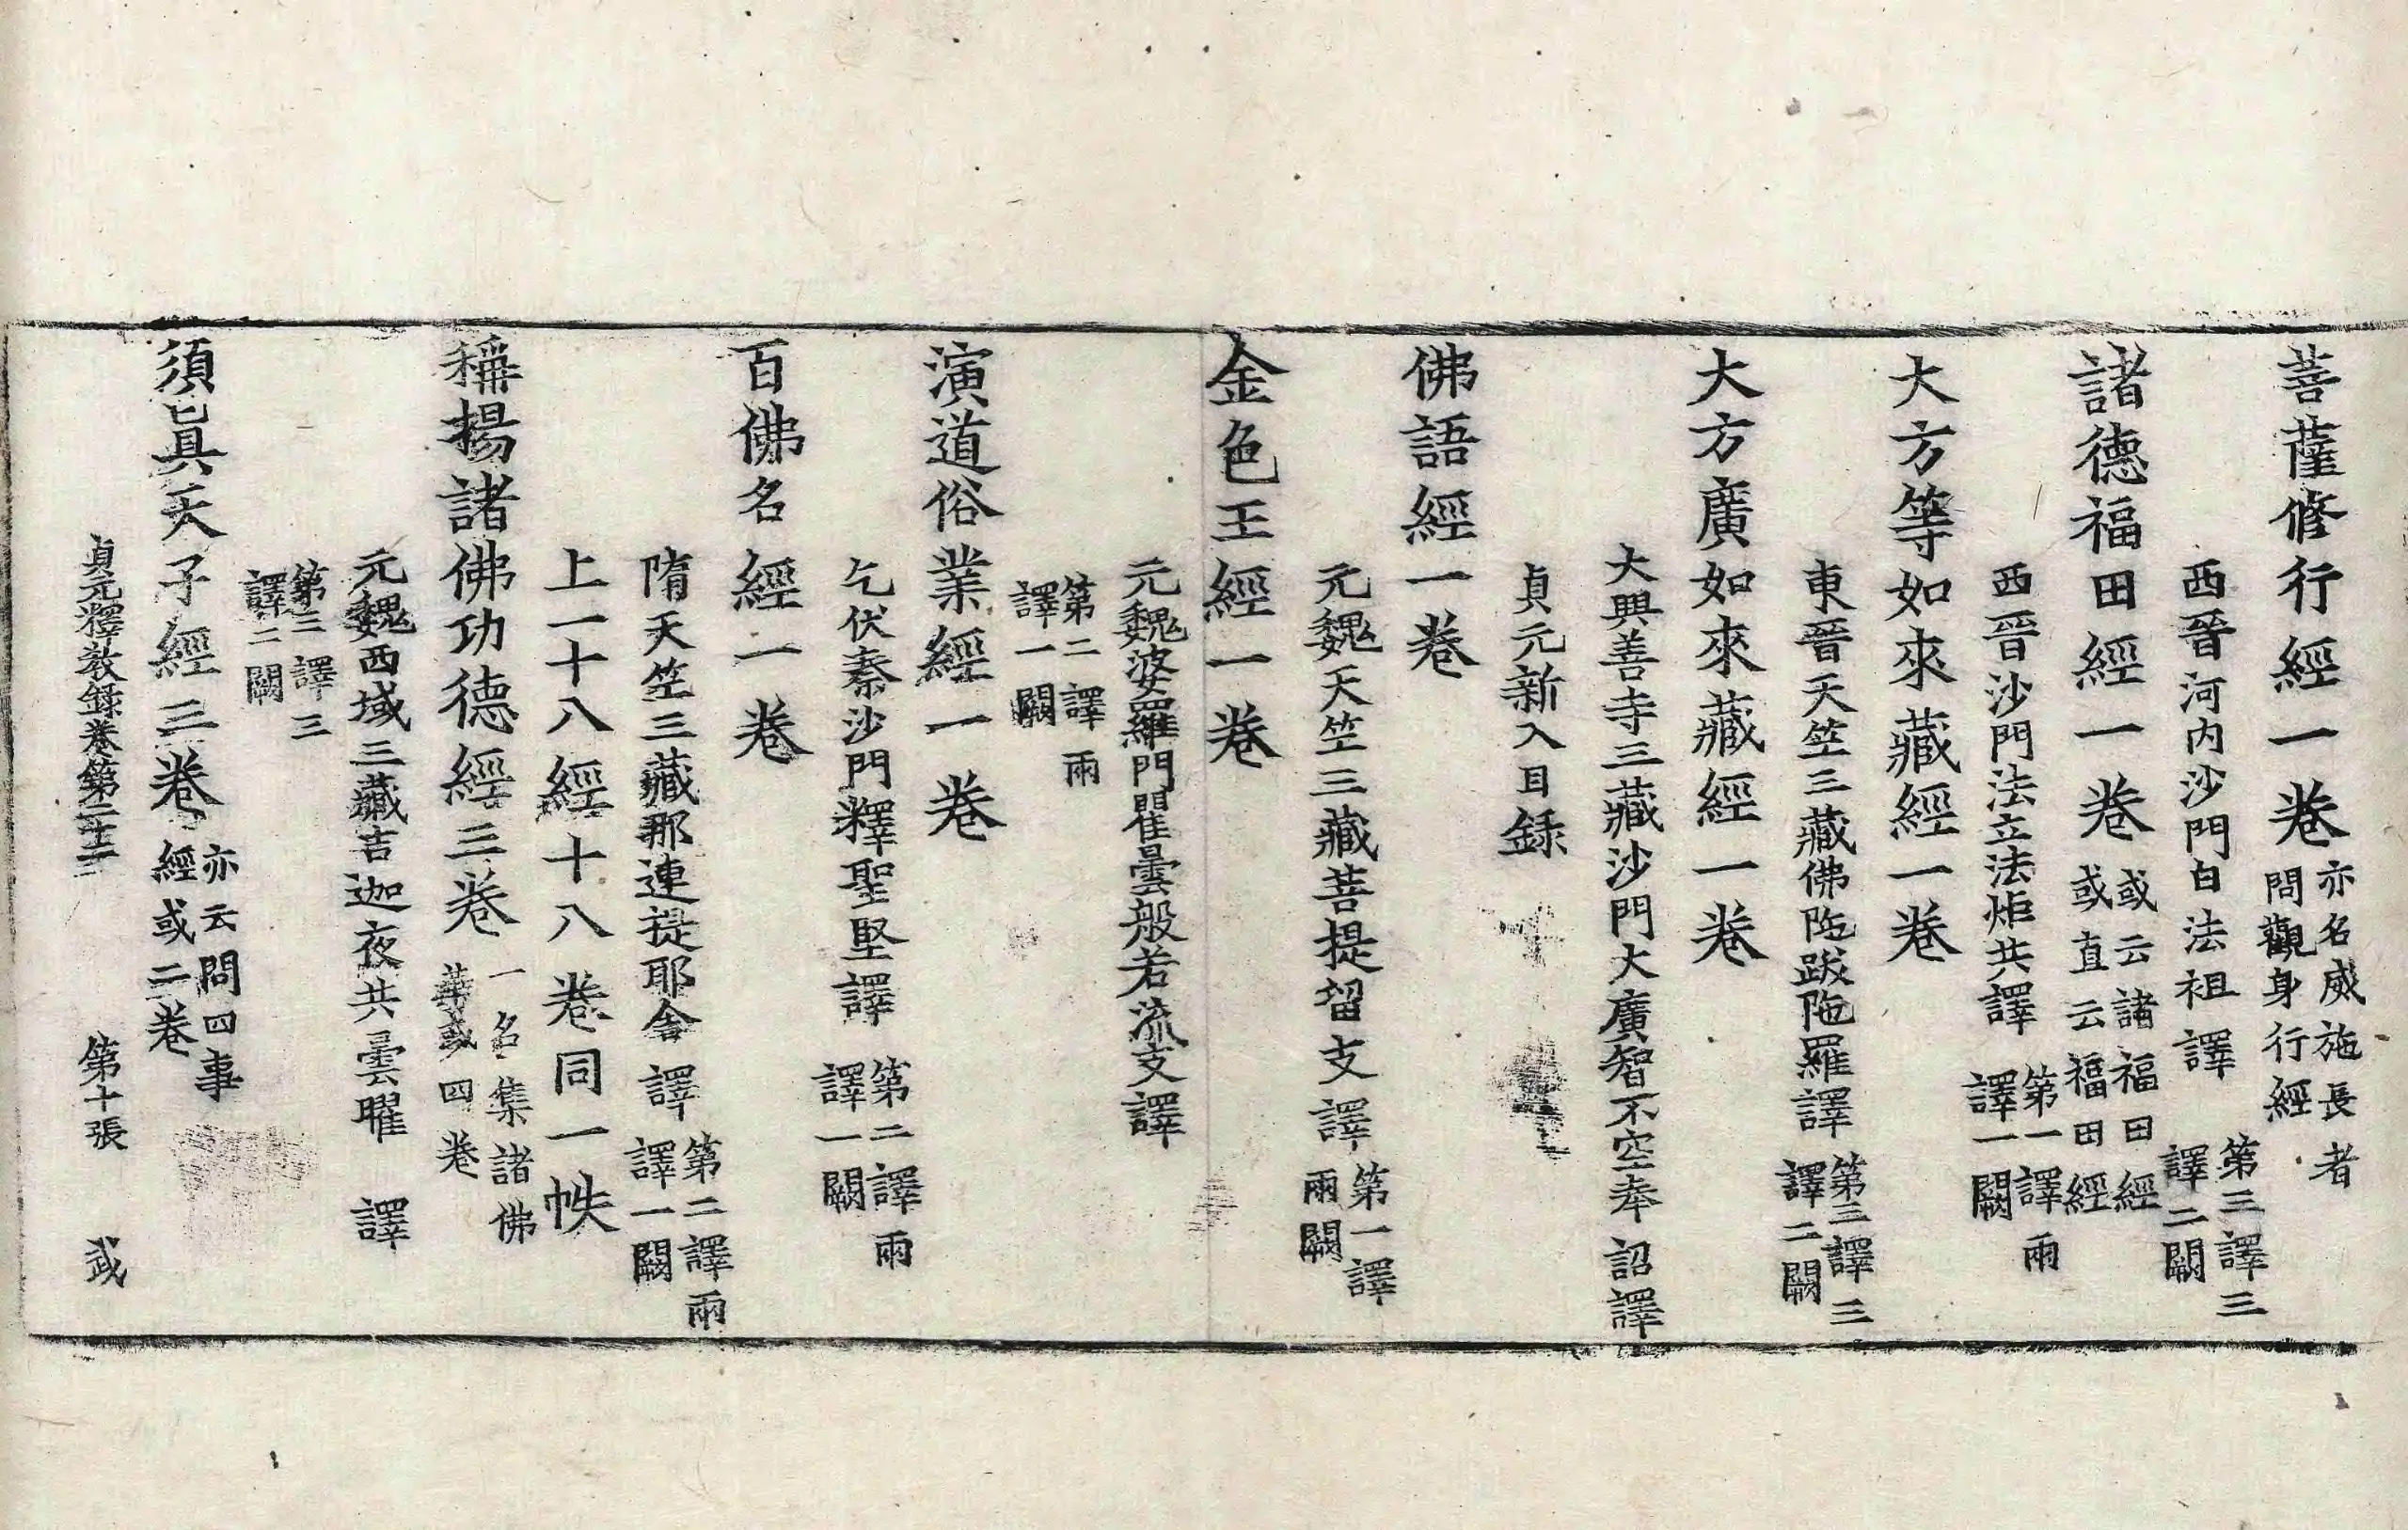 菩薩修行經一卷亦名威施長者問觀身行經
西晉河内沙門白法祖譯第三譯三譯二闕
諸德福田經一卷或云諸福田經或直云福田經
西晉沙門法立法炬共譯第一譯兩譯一闕
大方等如來藏經一卷
東晉天竺三藏佛陁跋陁羅譯第三譯三譯二闕
大方廣如來藏經一卷
大興善寺三藏沙門大廣智不空奉詔譯
貞元新入目録
佛語經一卷
元魏天竺三藏菩提留支譯第一譯兩闕
金色王經一卷
元魏婆羅門瞿曇般若流支譯
第二譯兩譯一闕
演道俗業經一卷
乞伏秦沙門釋聖堅譯第二譯兩譯一闕
百佛名經一卷
隋天竺三藏那連提耶舍譯第二譯兩譯一闕
上一十八經十八卷同一帙
稱揚諸佛功德經三卷一名集諸佛華或四卷
元魏西域三藏吉迦夜共曇曜譯
第三譯三譯二闕
須眞天子經三卷亦云問四事經或二卷
貞元釋教録卷第二十二 第十張 武